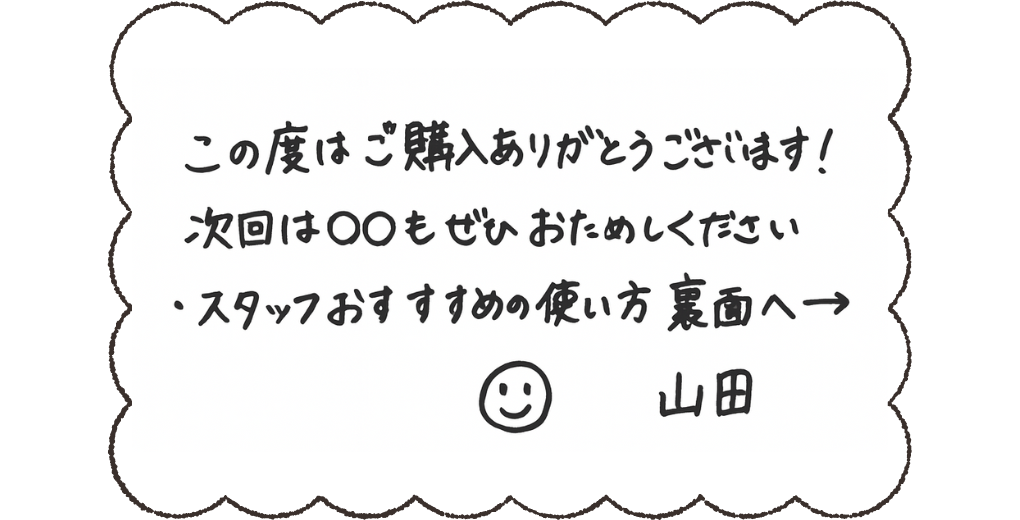 この度はご購入ありがとうございます!
次回は〇〇もぜひおためしください
・スタッフおすすすめの使い方 裏面へ→
山田